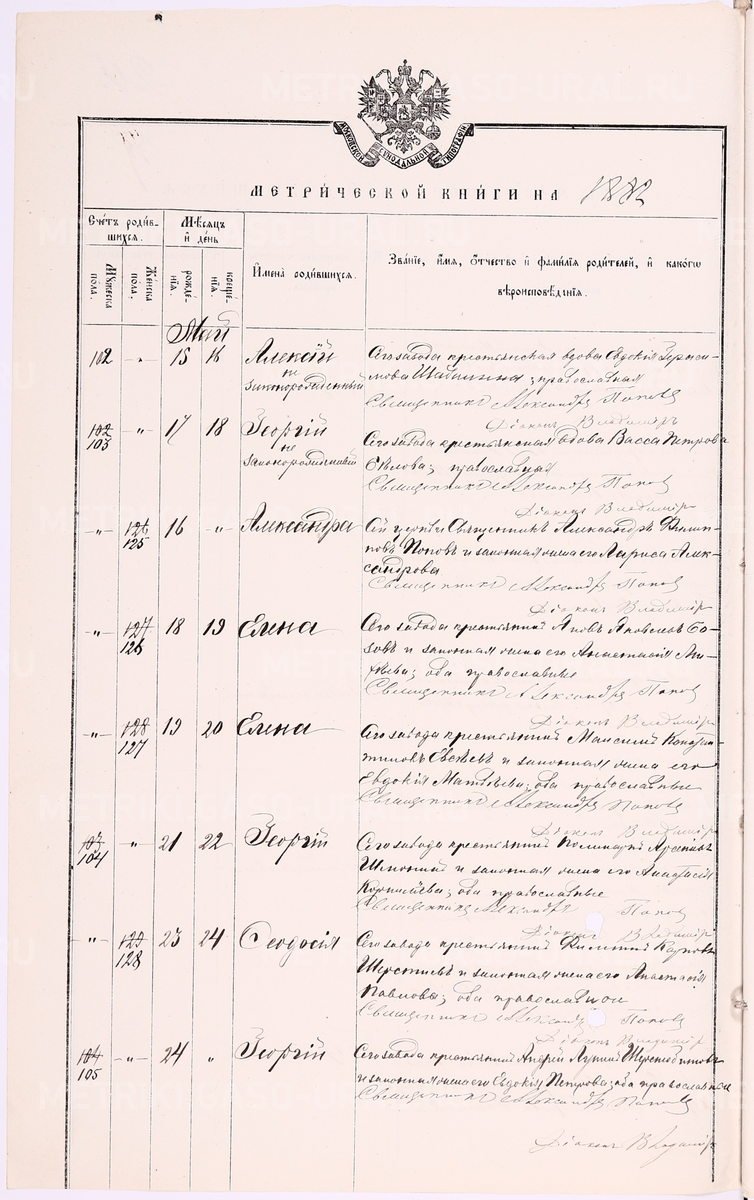 МОСКОВСКОЙ СѴНОДАЛЬНОЙ ТИПОГРАФІИ
МЕТРИЧЕСКОЙ КНИГИ НА 1882
Счетъ родившихся.
Мѣсяцъ и день
Имена родившихся.
Званіе, имя, отчество и фамилія родителей, и какого
вѣроисповѣданія.
Мужеска пола.
Женска пола.
рожденія.
крещенія.
Май
102 " 15 16 Алексій
не
законорожденный
Сего завода крестьянская вдова Евдокія Гераси-
мова; православная
Священникъ Александръ Поповъ
Діаконъ Владиміръ
102
103 " 17 18 Георгій
не
законорожденный
Сего завода крестьянская вдова Васса Петрова
православная
Священникъ Александръ Поповъ
Діаконъ Владиміръ
" 126
125 16 " Александра
Сей церкви Священникъ Александръ Филип-
повъ Поповъ и законная жена его Лариса Алек-
сандрова
Священникъ Александръ Поповъ
Діаконъ Владиміръ
" 127
126 18 19 Елена
Сего завода крестьянинъ Яковлевъ
и законная жена его Анастасія
оба православные
Священникъ Александръ Поповъ
Діаконъ Владиміръ
" 128
127 19 20 Елена
Сего завода крестьянинъ Констан-
тиновъ и законная жена его
Евдокія Матвѣева; оба православные
Священникъ Александръ Поповъ
Діаконъ Владиміръ
103
104 " 21 22 Георгій
Сего завода крестьянинъ
и законная жена его Анастасія
Корнилѣева; оба православные
Священникъ Александръ Поповъ
Діаконъ Владиміръ
" 129
128 23 24 Ѳеодосія
Сего завода крестьянинъ Карповъ
и законная жена его Анастасія
Павлова; оба православные
Священникъ Александръ Поповъ
Діаконъ Владиміръ
104
105 " 24 " Георгій
Сего завода крестьянинъ Андрей
и законная жена его Евдокія Петрова; оба православные
Священникъ Александръ Поповъ
Діаконъ Владиміръ